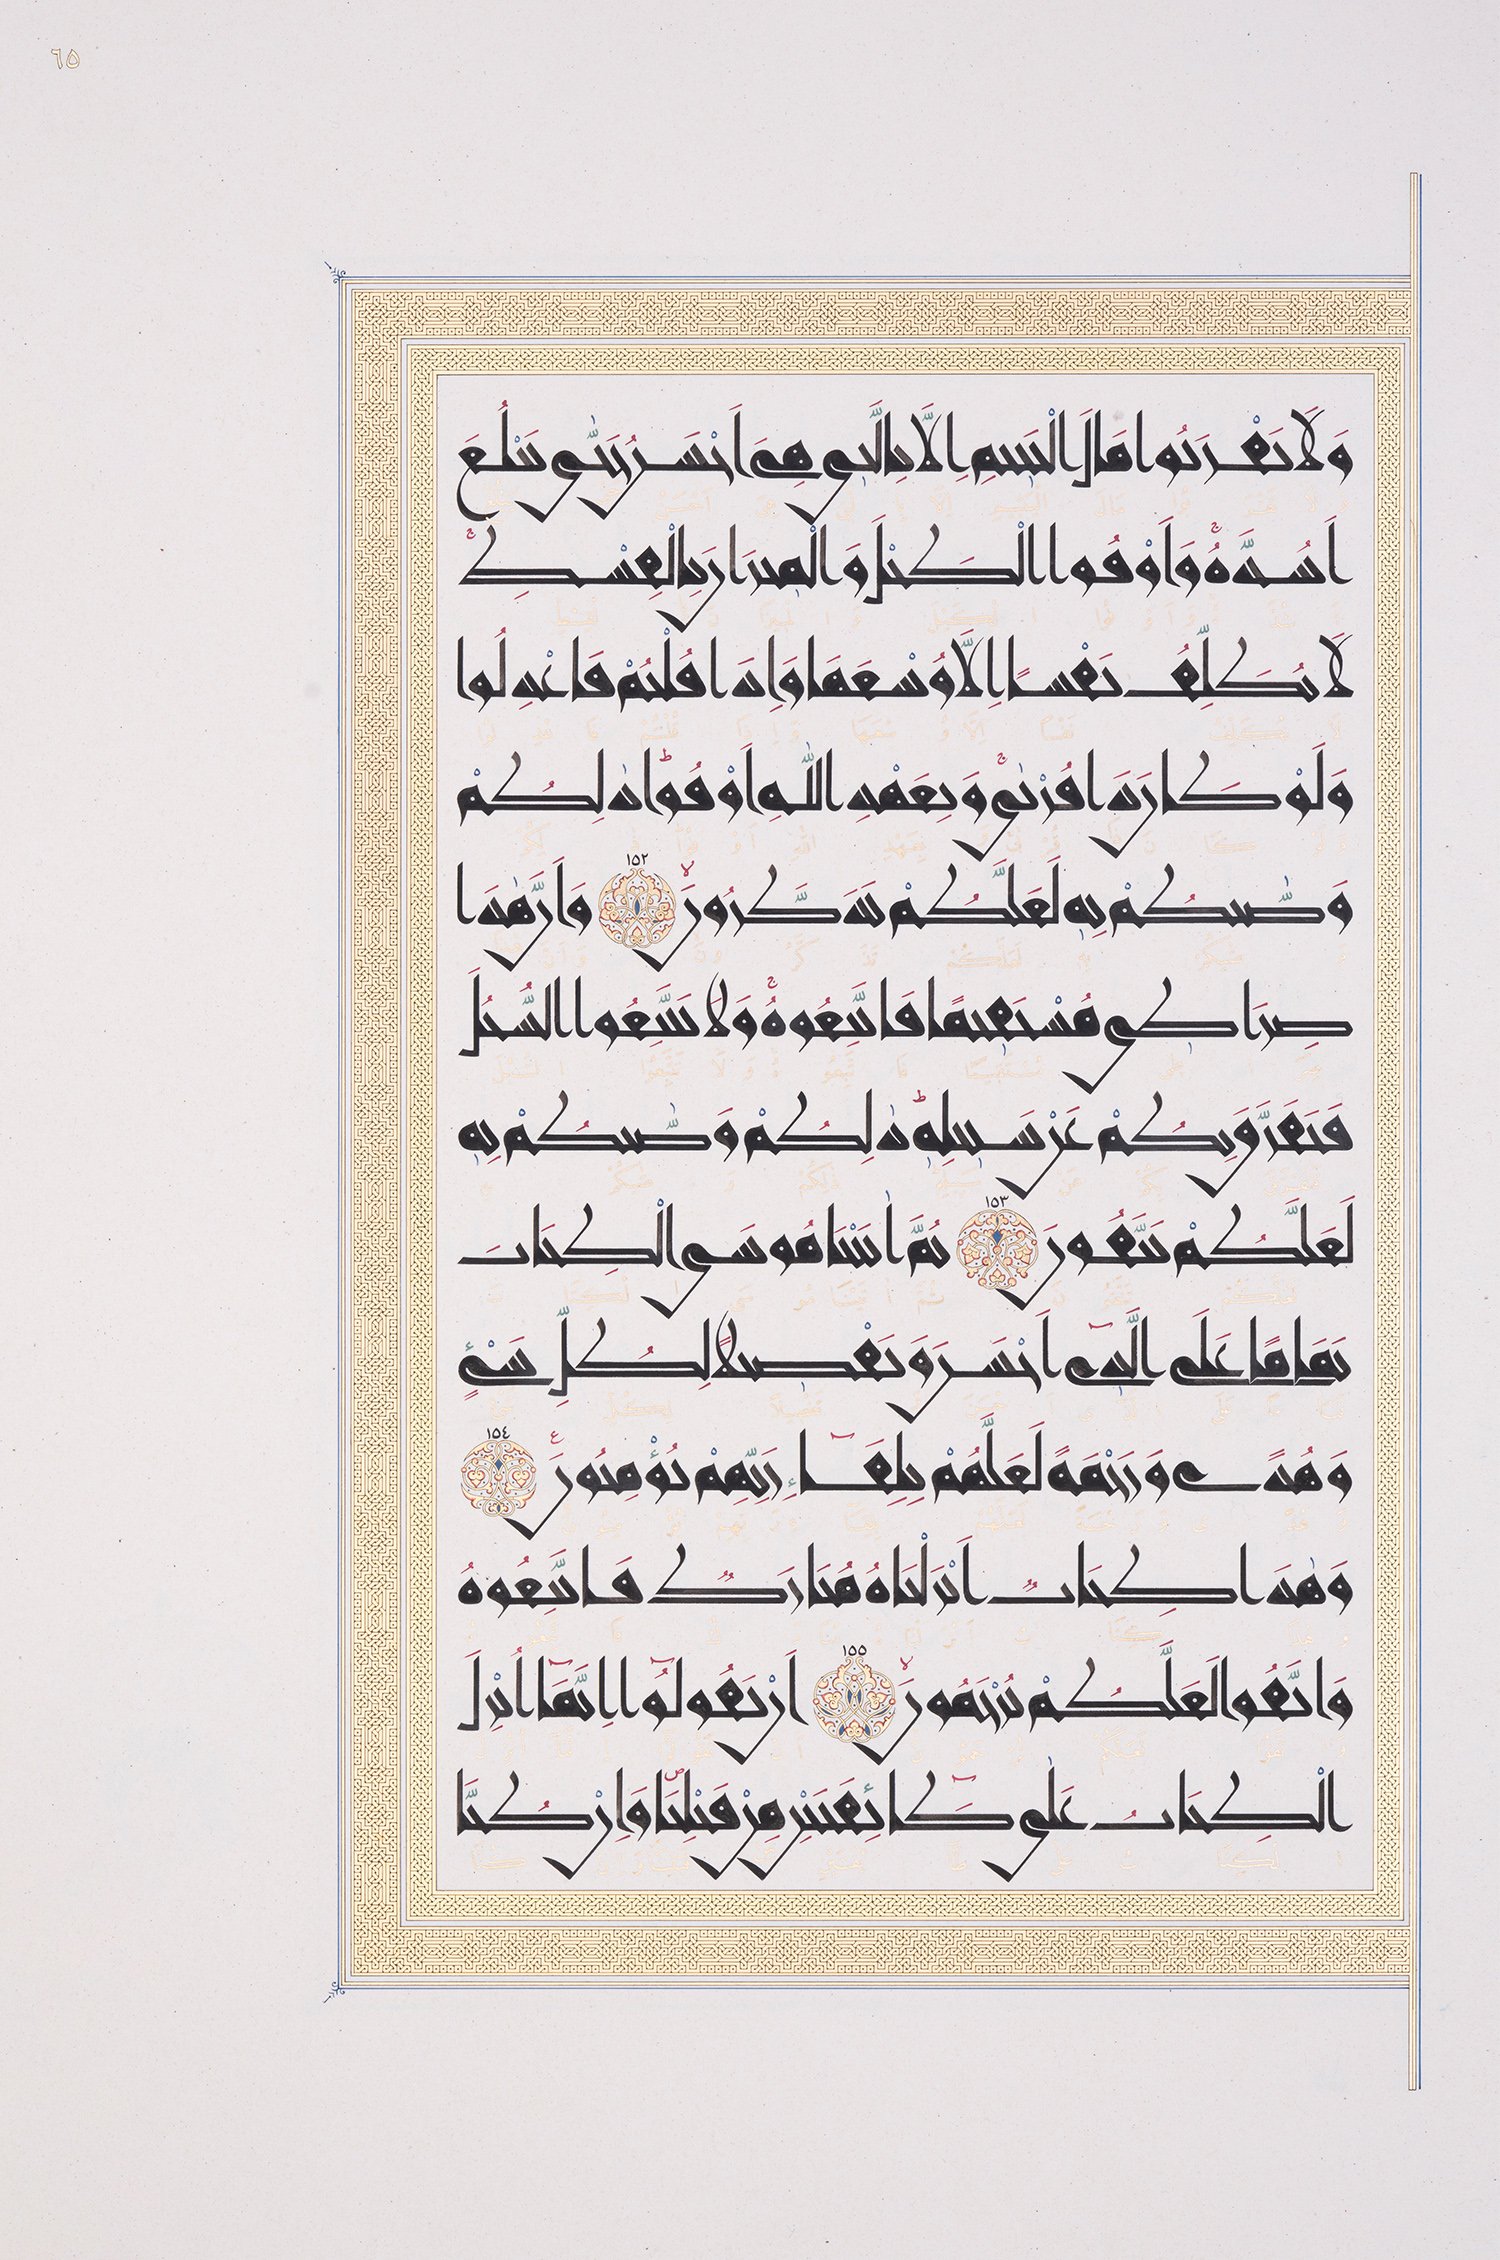 ٦٥
وَلَا تَقْرَبُوا مَالَ الْيَتِيمِ اِلَّا بِالَّتِي هِيَ اَحْسَنُ حَتّٰى يَبْلُغَ
اَشُدَّهُ وَاَوْفُوا الْكَيْلَ وَالْمِيزَانَ بِالْقِسْطِ
لَا نُكَلِّفُ نَفْسًا اِلَّا وُسْعَهَا وَاِذَا قُلْتُمْ فَاعْدِلُوا
وَلَوْ كَانَ ذَا قُرْبٰى وَبِعَهْدِ اللّٰهِ اَوْفُوا ذٰلِكُمْ
وَصّٰيكُمْ بِهٖ لَعَلَّكُمْ تَذَكَّرُونَ ١٥٢ وَاَنَّ هٰذَا
صِرَاطِي مُسْتَقِيمًا فَاتَّبِعُوهُ وَلَا تَتَّبِعُوا السُّبُلَ
فَتَفَرَّقَ بِكُمْ عَنْ سَبِيلِهٖ ذٰلِكُمْ وَصّٰيكُمْ بِهٖ
لَعَلَّكُمْ تَتَّقُونَ ١٥٣ ثُمَّ اٰتَيْنَا مُوسَى الْكِتَابَ
تَمَامًا عَلَى الَّذِٓي اَحْسَنَ وَتَفْصِيلًا لِكُلِّ شَيْءٍ
وَهُدًى وَرَحْمَةً لَعَلَّهُمْ بِلِقَٓاءِ رَبِّهِمْ يُؤْمِنُونَ ١٥٤
وَهٰذَا كِتَابٌ اَنْزَلْنَاهُ مُبَارَكٌ فَاتَّبِعُوهُ
وَاتَّقُوا لَعَلَّكُمْ تُرْحَمُونَ ١٥٥ اَنْ تَقُولُٓوا اِنَّمَٓا اُنْزِلَ
الْكِتَابُ عَلٰى طَٓائِفَتَيْنِ مِنْ قَبْلِنَا وَاِنْ كُنَّا